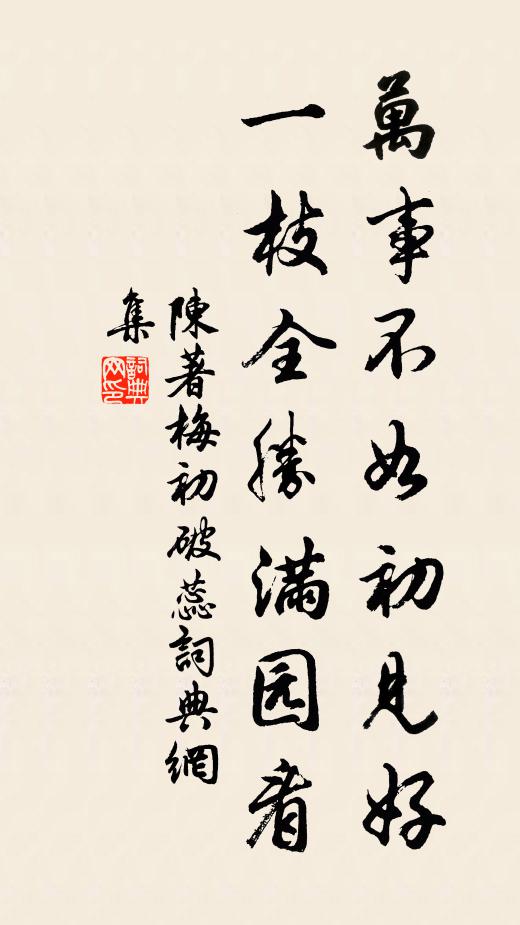 萬事不如初見好
一枝全勝满园看
陳著梅初破蕊詞典網
集
詞典网印